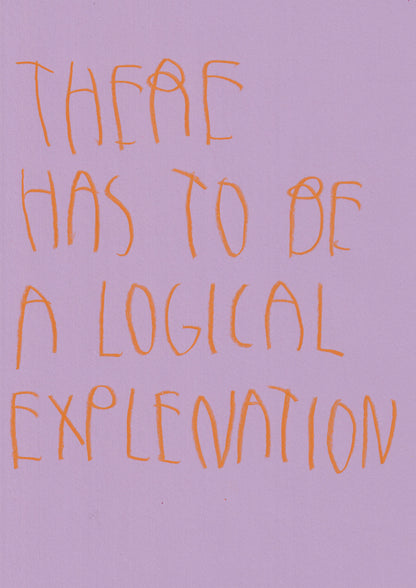 THERE
HAS TO BE
A LOGICAL
EXPLENATION